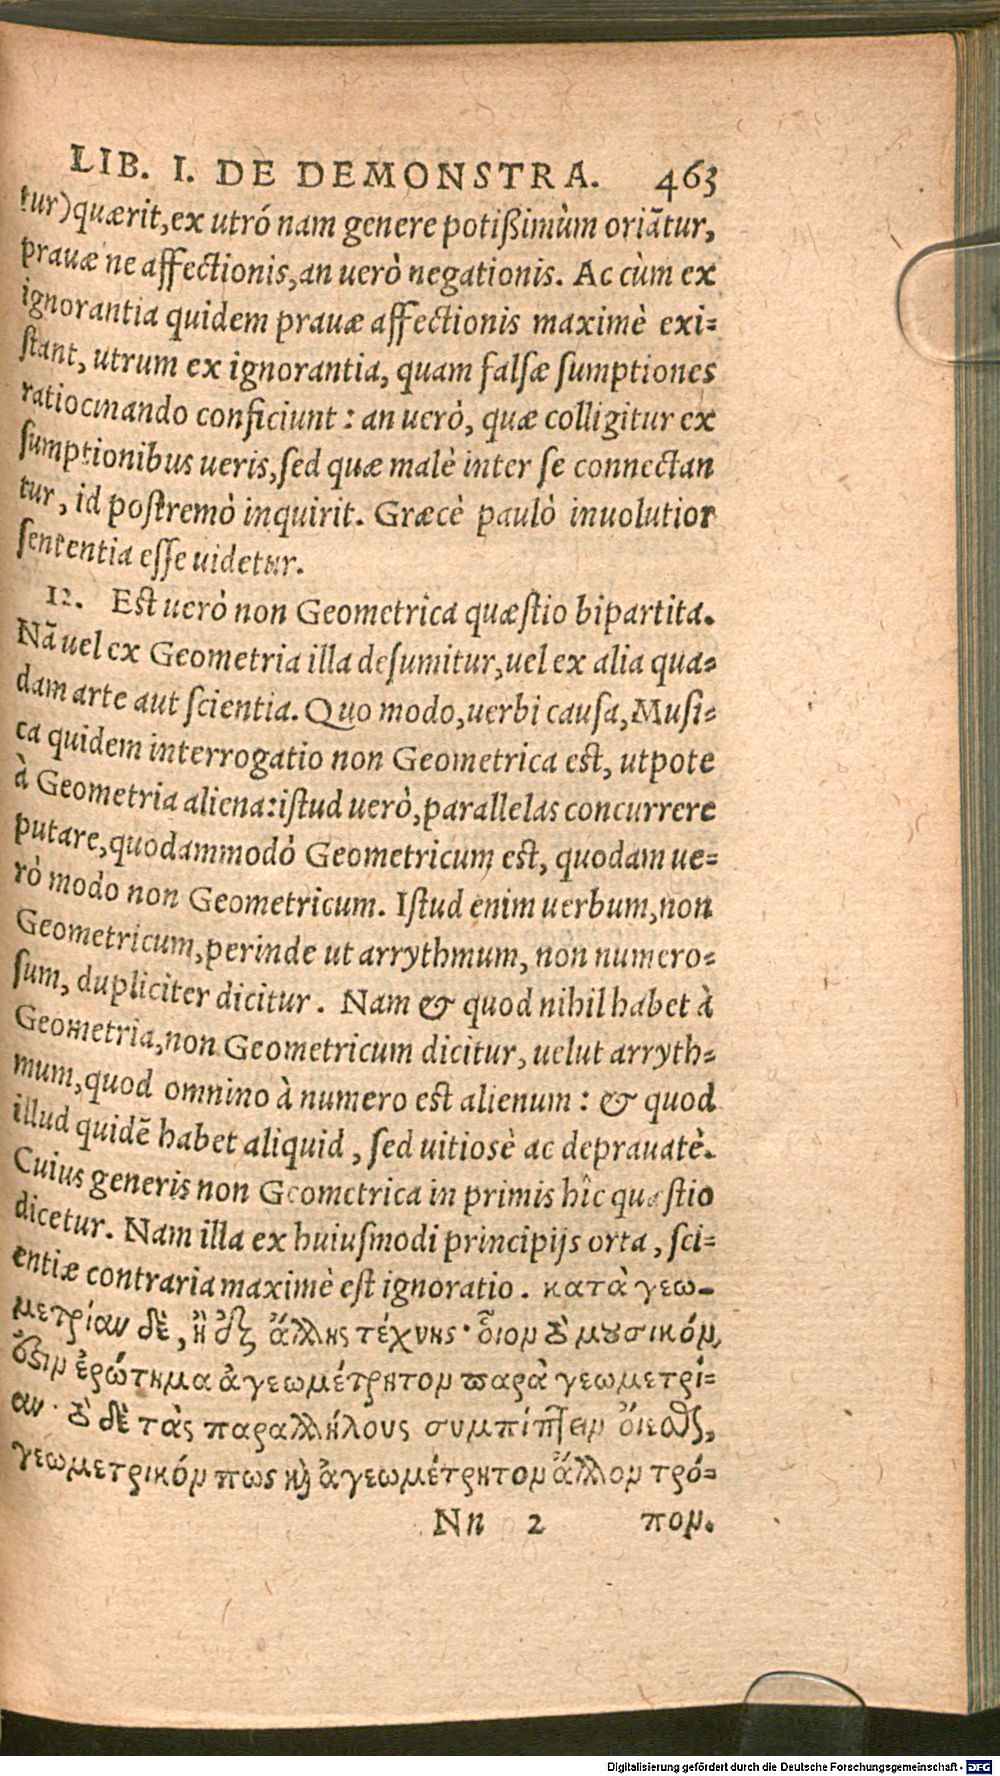 LIB. I. DE DEMONSTRA. 463
tur) quærit, ex utró nam genere potißimùm oriãtur,
prauæ ne affectionis, an uerò negationis. Ac cùm ex
ignorantia quidem prauæ affectionis maximè exi=
stant, utrum ex ignorantia, quam falsæ sumptiones
ratiocinando conficiunt: an uerò, quæ colligitur ex
sumptionibus ueris, sed quæ malè inter se connectan
tur, id postremò inquirit. Græcè paulò inuolutior
sententia esse uidetur.
12. Est uerò non Geometrica quæstio bipartita.
Nã uel ex Geometria illa desumitur, uel ex alia qua=
dam arte aut scientia. Quo modo, uerbi causa, Musi=
ca quidem interrogatio non Geometrica est, utpote
à Geometria aliena: istud uerò, parallelas concurrere
putare, quodammodò Geometricum est, quodam ue=
rò modo non Geometricum. Istud enim uerbum, non
Geometricum, perinde ut arrythmum, non numero=
sum, dupliciter dicitur. Nam & quod nihil habet à
Geometria, non Geometricum dicitur, uelut arryth=
mum, quod omnino à numero est alienum: & quod
illud quidẽ habet aliquid, sed uitiosè ac deprauatè.
Cuius generis non Geometrica in primis hîc quæstio
dicetur. Nam illa ex huiusmodi principijs orta, sci=
entiæ contraria maximè est ignoratio. κατὰ γεω-
μετρίαν δὲ, ἢ ἐξ ἄλλης τέχνης· οἷον τὸ μουσικόν
ἐστιν ἐρώτημα ἀγεωμέτρητον παρὰ γεωμετρί=
αν· τὸ δὲ τὰς παραλλήλους συμπίπτειν οἴεσθαι,
γεωμετρικόν πως καὶ ἀγεωμέτρητον ἄλλον τρό=
Nn 2 πον.
Digitalisierung gefördert durch die Deutsche Forschungsgemeinschaft - DFG